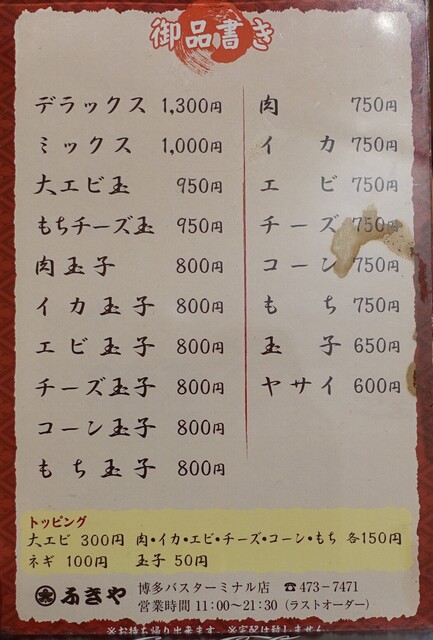 御品書き
デラックス 1,300円
ミックス 1,000円
大エビ玉 950円
もちチーズ玉 950円
肉玉子 800円
イカ玉子 800円
エビ玉子 800円
チーズ玉子 800円
コーン玉子 800円
もち玉子 800円
肉 750円
イカ 750円
エビ 750円
チーズ 750円
コーン 750円
もち 750円
玉子 650円
ヤサイ 600円
トッピング
大エビ 300円 肉・イカ・エビ・チーズ・コーン・もち 各150円
ネギ 100円 玉子 50円
ふきや 博多バスターミナル店 ☎473-7471
営業時間 11:00〜21:30（ラストオーダー）
※お持ち帰り出来ます。※宅配は致しません